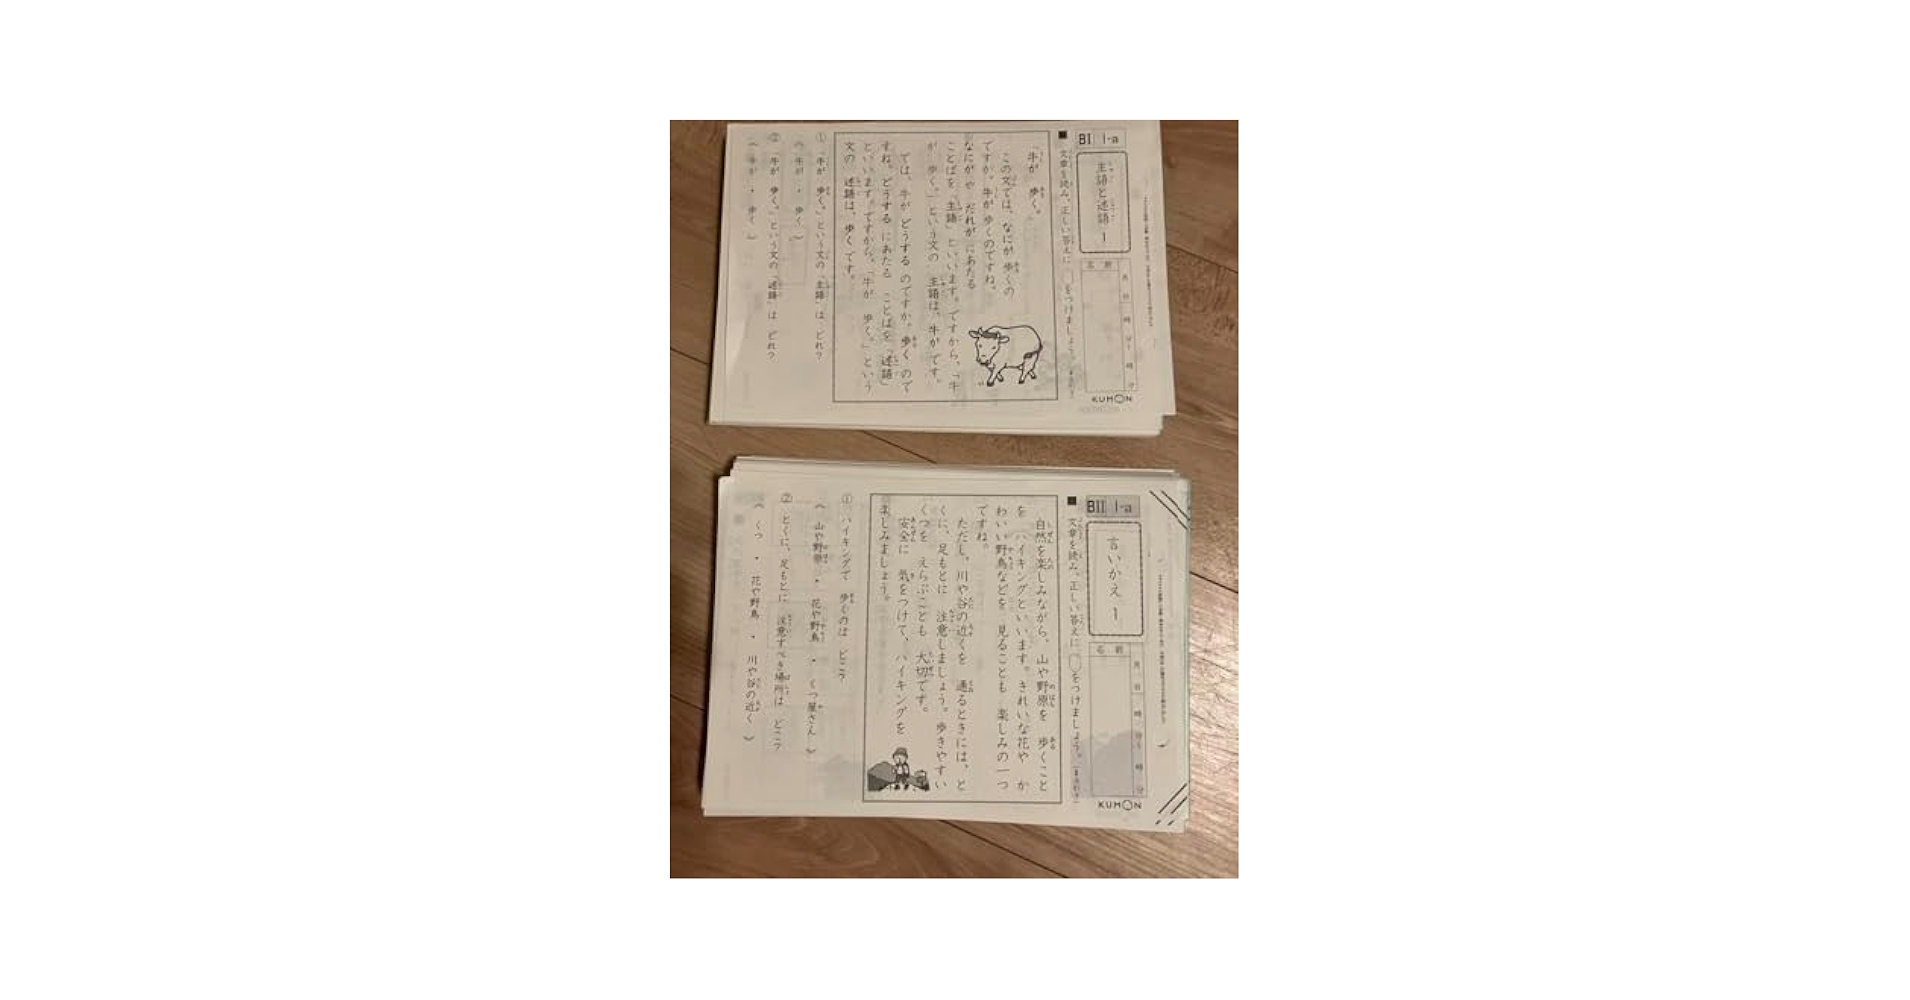 BI 1-a
主語と述語 1
名前
月 日 時 分〜 時 分
KUMON
■ 文章を読み、正しい答えに ◯をつけましょう。
「牛が 歩く。」
この文では、なにが 歩くの
ですか。牛が 歩くのですね。
なにがや だれが にあたる
ことばを 「主語」 といいます。ですから、「牛
が 歩く。」という文の 主語は、牛が です。
では、牛が どうする のですか。歩く ので
すね。どうする にあたる ことばを 「述語」
といいます。ですから、「牛が 歩く。」という
文の 述語は、歩く です。
① 「牛が 歩く。」という文の「主語」は どれ?
( 牛が ・ 歩く )
② 「牛が 歩く。」という文の「述語」は どれ?
( 牛が ・ 歩く )
BII 1-a
言いかえ 1
名前
月 日 時 分〜 時 分
KUMON
■ 文章を読み、正しい答えに ◯をつけましょう。
自然を楽しみながら、山や野原を 歩くこと
を ハイキングといいます。きれいな花や か
わいい野鳥などを 見ることも 楽しみの一つ
ですね。
ただし、川や谷の近くを 通るときには、と
くに、足もとに 注意しましょう。歩きやすい
くつを えらぶことも 大切です。
安全に 気をつけて、ハイキングを
楽しみましょう。
① ハイキングで 歩くのは どこ?
( 山や野原 ・ 花や野鳥 ・ くつ屋さん )
② とくに、足もとに 注意すべき場所は どこ?
( くつ ・ 花や野鳥 ・ 川や谷の近く )